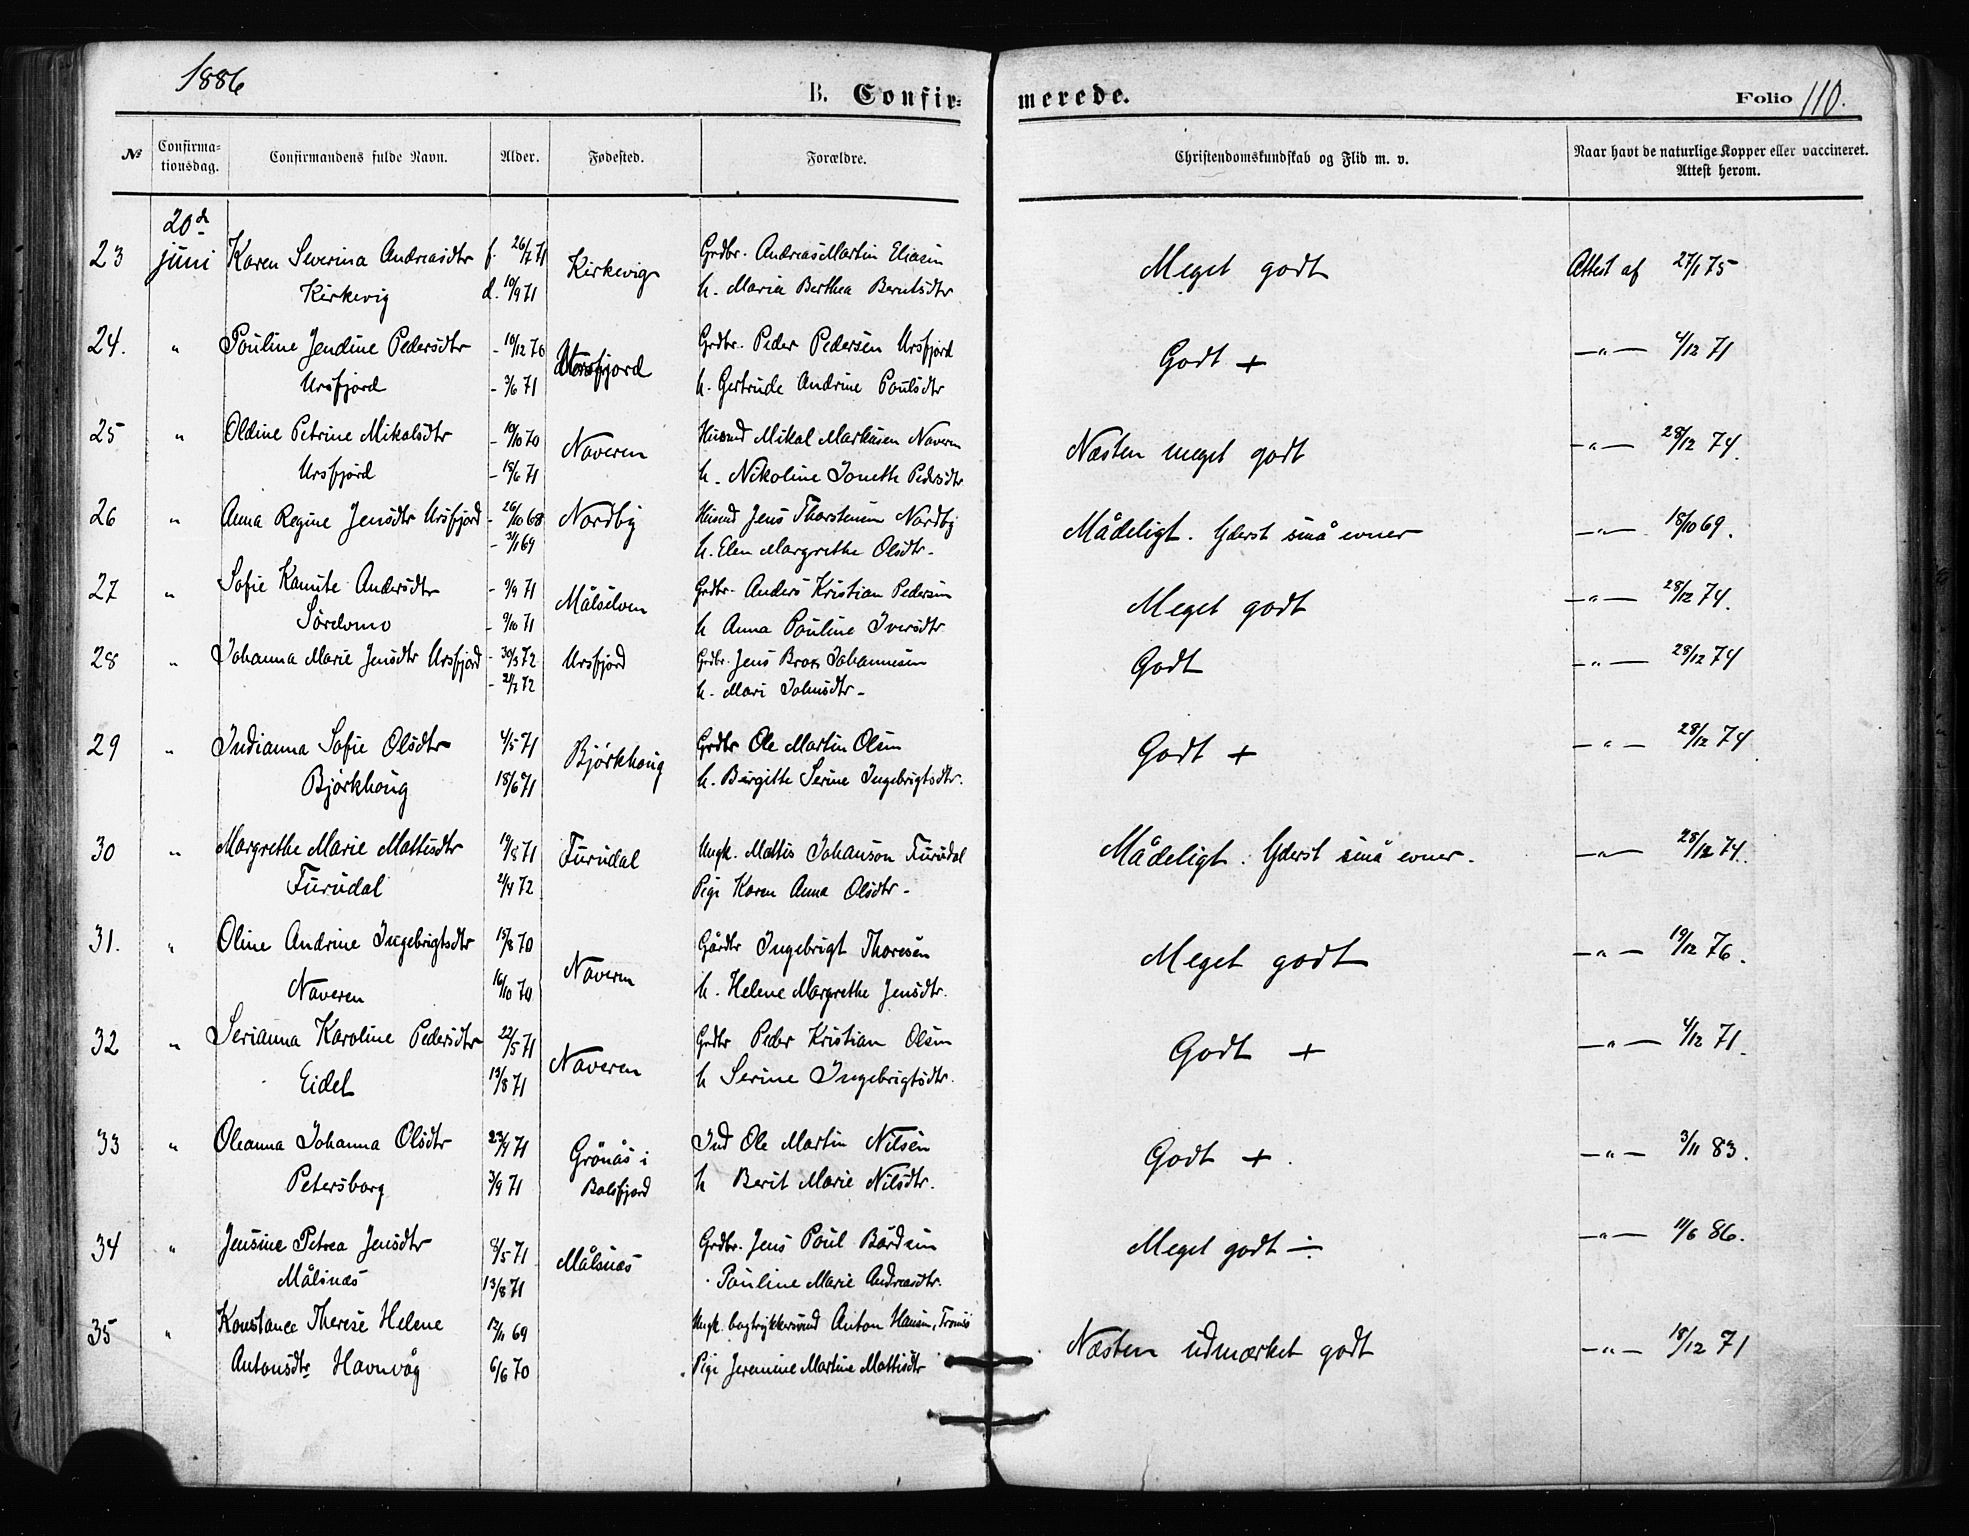 1886
B. Confir= merede. Folio 110.
№ Confirma=tionsdag. Confirmandens fulde Navn. Alder. Fødested. Forældre. Christendomskundskab og Flid m. v. Naar havt de naturlige Kopper eller vaccineret. Attest herom.
20d
23 juni Karen Severina Andreasdtr f. 26/7 71 Kirkevig Grdbr. Andreas Martin Eliasen Meget godt Attest af 27/1 75
Kirkevig d. 10/9 71 h. Maria Berthea Berntsdtr
24. " Pouline Jendine Pedersdtr - 10/12 70 Ursfjord Grdbr. Peder Pedersen Ursfjord Godt + —"— 4/12 71
Ursfjord - 3/6 71 h. Gertrude Andrine Poulsdtr
25 " Oldine Petrine Mikalsdtr - 10/10 70 Naveren Husmd Mikal Markusen Naveren Næsten meget godt —"— 28/12 74.
Ursfjord - 18/6 71 h. Nikoline Joneth Pedersdtr
26 " Anna Regine Jensdtr Ursfjord - 26/10 68 Nordby Husmd Jens Thorstensen Nordby Mådeligt. Yderst små evner —"— 18/10 69.
- 3/1 69 h. Elen Margrethe Olsdtr.
27 " Sofie Kamite Andersdtr - 9/9 71 Målselven Grdbr. Anders Kristian Pedersen Meget godt —"— 28/12 74.
Sørdomo - 9/10 71 h Anna Pouline Iversdtr
28 " Johanna Marie Jensdtr Ursfjord - 30/3 72 Ursfjord Grdbr. Jens Brox Johannesen Godt —"— 28/12 74
- 21/7 72 h. Mari Johnsdtr.
29 " Indianna Sofie Olsdtr 4/5 71 Bjørkhoug Grdbr Ole Martin Olsen Godt + —"— 28/12 74
Bjørkhoug 18/6 71 h. Birgitte Serine Ingebrigtsdtr.
30 " Margrethe Marie Mattisdtr 19/8 71 Furudal Ungk. Mattis Johanson Furudal Mådeligt. Yderst små evner. —"— 28/12 74.
Furudal 2/4 72 Pige Karen Anna Olsdtr.
31. " Oline Andrine Ingebrigtsdtr 15/8 70 Naveren Gårdbr Ingebrigt Thoresen Meget godt —"— 19/12 76.
Naveren 16/10 70 h. Helene Margrethe Jensdtr.
32 " Serianna Karoline Pedersdtr 22/5 71 Naveren Grdbr Peder Kristian Olsen Godt + —"— 4/12 71.
Eidet 13/8 71 h Serine Ingebrigtsdtr.
33 " Oleanna Johanna Olsdtr 23/4 71 Grönås i Ind Ole Martin Nilsen Godt +. —"— 3/11 83.
Petersborg 3/9 71 Balsfjord h Berit Marie Nilsdtr.
34 " Jensine Petrea Jensdtr 8/5 71 Målsnæs Grdbr. Jens Poul Bårdsen Meget godt ÷ —"— 11/6 86.
Målsnæs 13/8 71 Pauline Marie Andreasdtr.
35 " Konstance Therese Helene 12/11 69 Ungk. bogtrykkersvend Anton Hansen, Tromsö Næsten udmærket godt —"— 18/12 71
Antonsdtr Havnvåg 6/6 70 Pige Jeremine Martine Mattisdtr